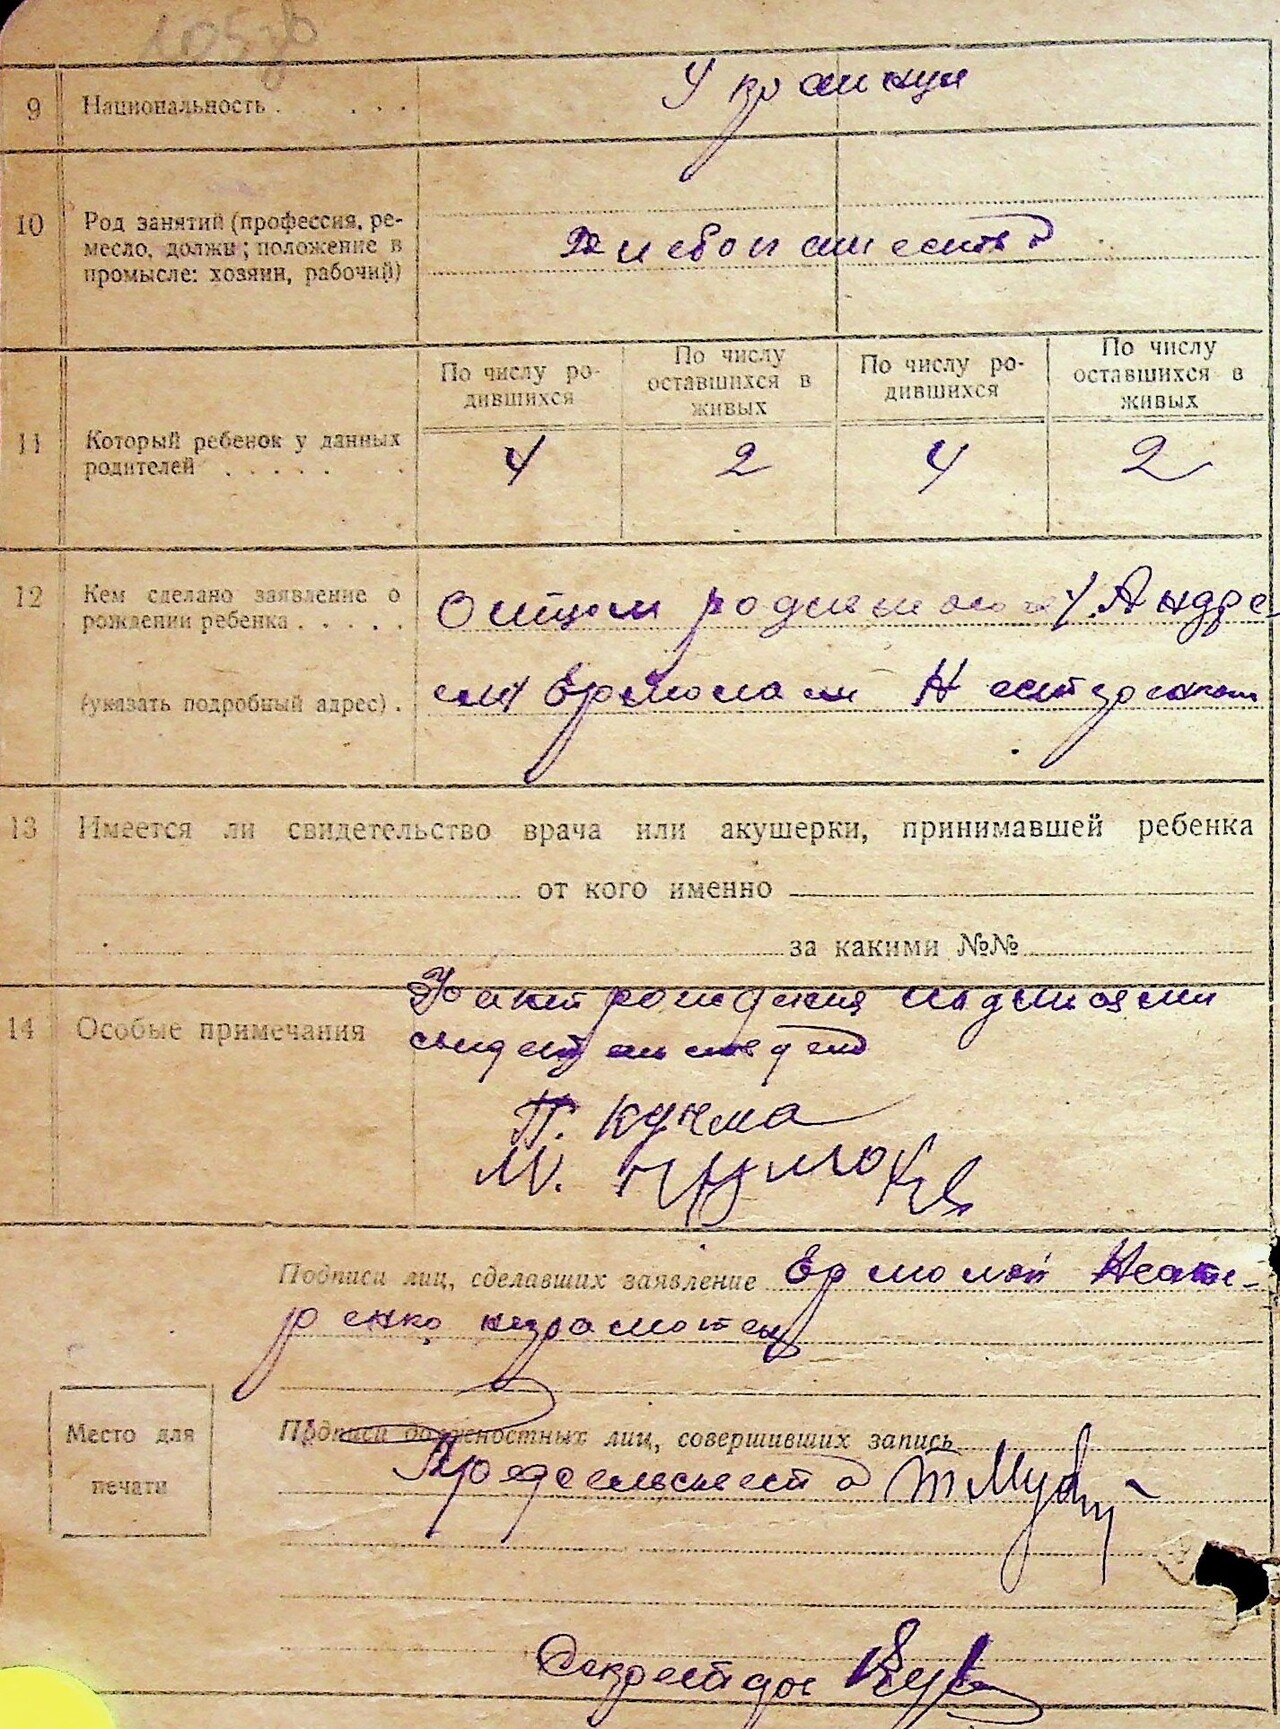 9 Национальность . . . . Украинци
10 Род занятий (профессия, ре-
месло, должн; положение в
промысле: хозяин, рабочий)
Хлебопашество
По числу ро-
дившихся
По числу
оставшихся в
живых
По числу ро-
дившихся
По числу
оставшихся в
живых
11 Который ребенок у данных
родителей . . . . . .
4 2 4 2
12 Кем сделано заявление о
рождении ребенка . . . . .
(указать подробный адрес) .
Отцем Андре
ем Ермолаем Нестеренком
13 Имеется ли свидетельство врача или акушерки, принимавшей ребенка
от кого именно
за какими №№
14 Особые примечания
Факт рождения
П. Кучма
М.
Подписи лиц, сделавших заявление Ермолай Несте-
ренко неграмотен
Место для
печати
Подписи должностных лиц, совершивших запись
Предсельсовета
Секретарь